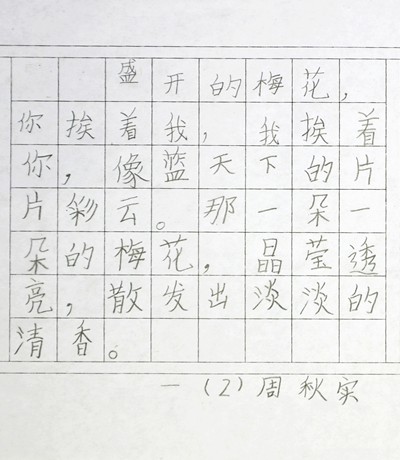 盛开的梅花，
你挨着我，我挨着
你，像蓝天下的片
片彩云。那一朵一
朵的梅花，晶莹透
亮，散发出淡淡的
清香。
一（2）周秋实